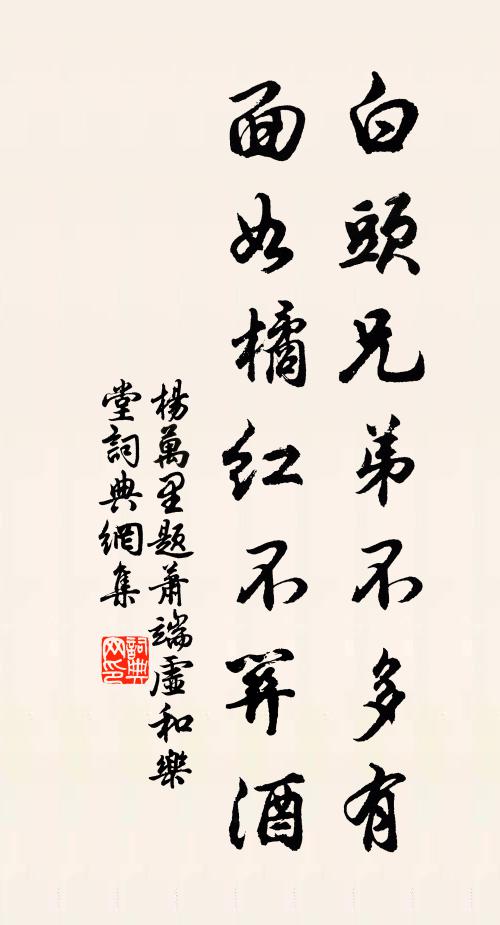 白頭兄弟不多有
面如橘紅不關酒
楊萬里題蕭端虛和樂
堂詞典網集
詞典
网印